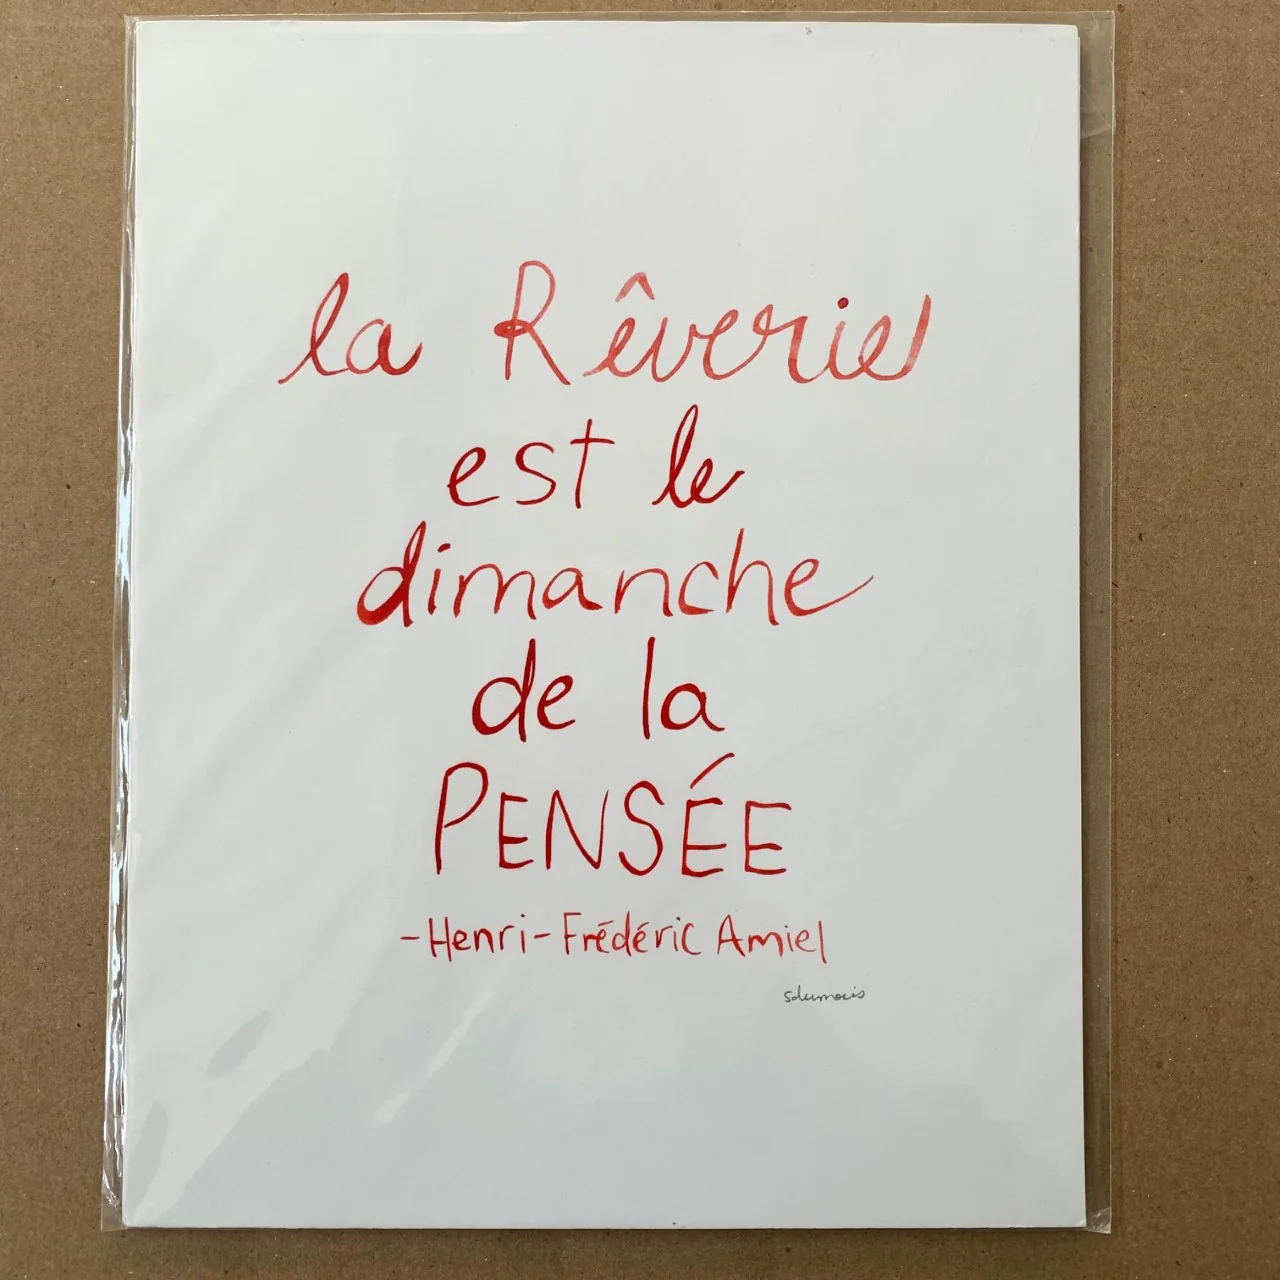 la Rêverie
est le
dimanche
de la
PENSÉE
-Henri-Frédéric Amiel
sdumais